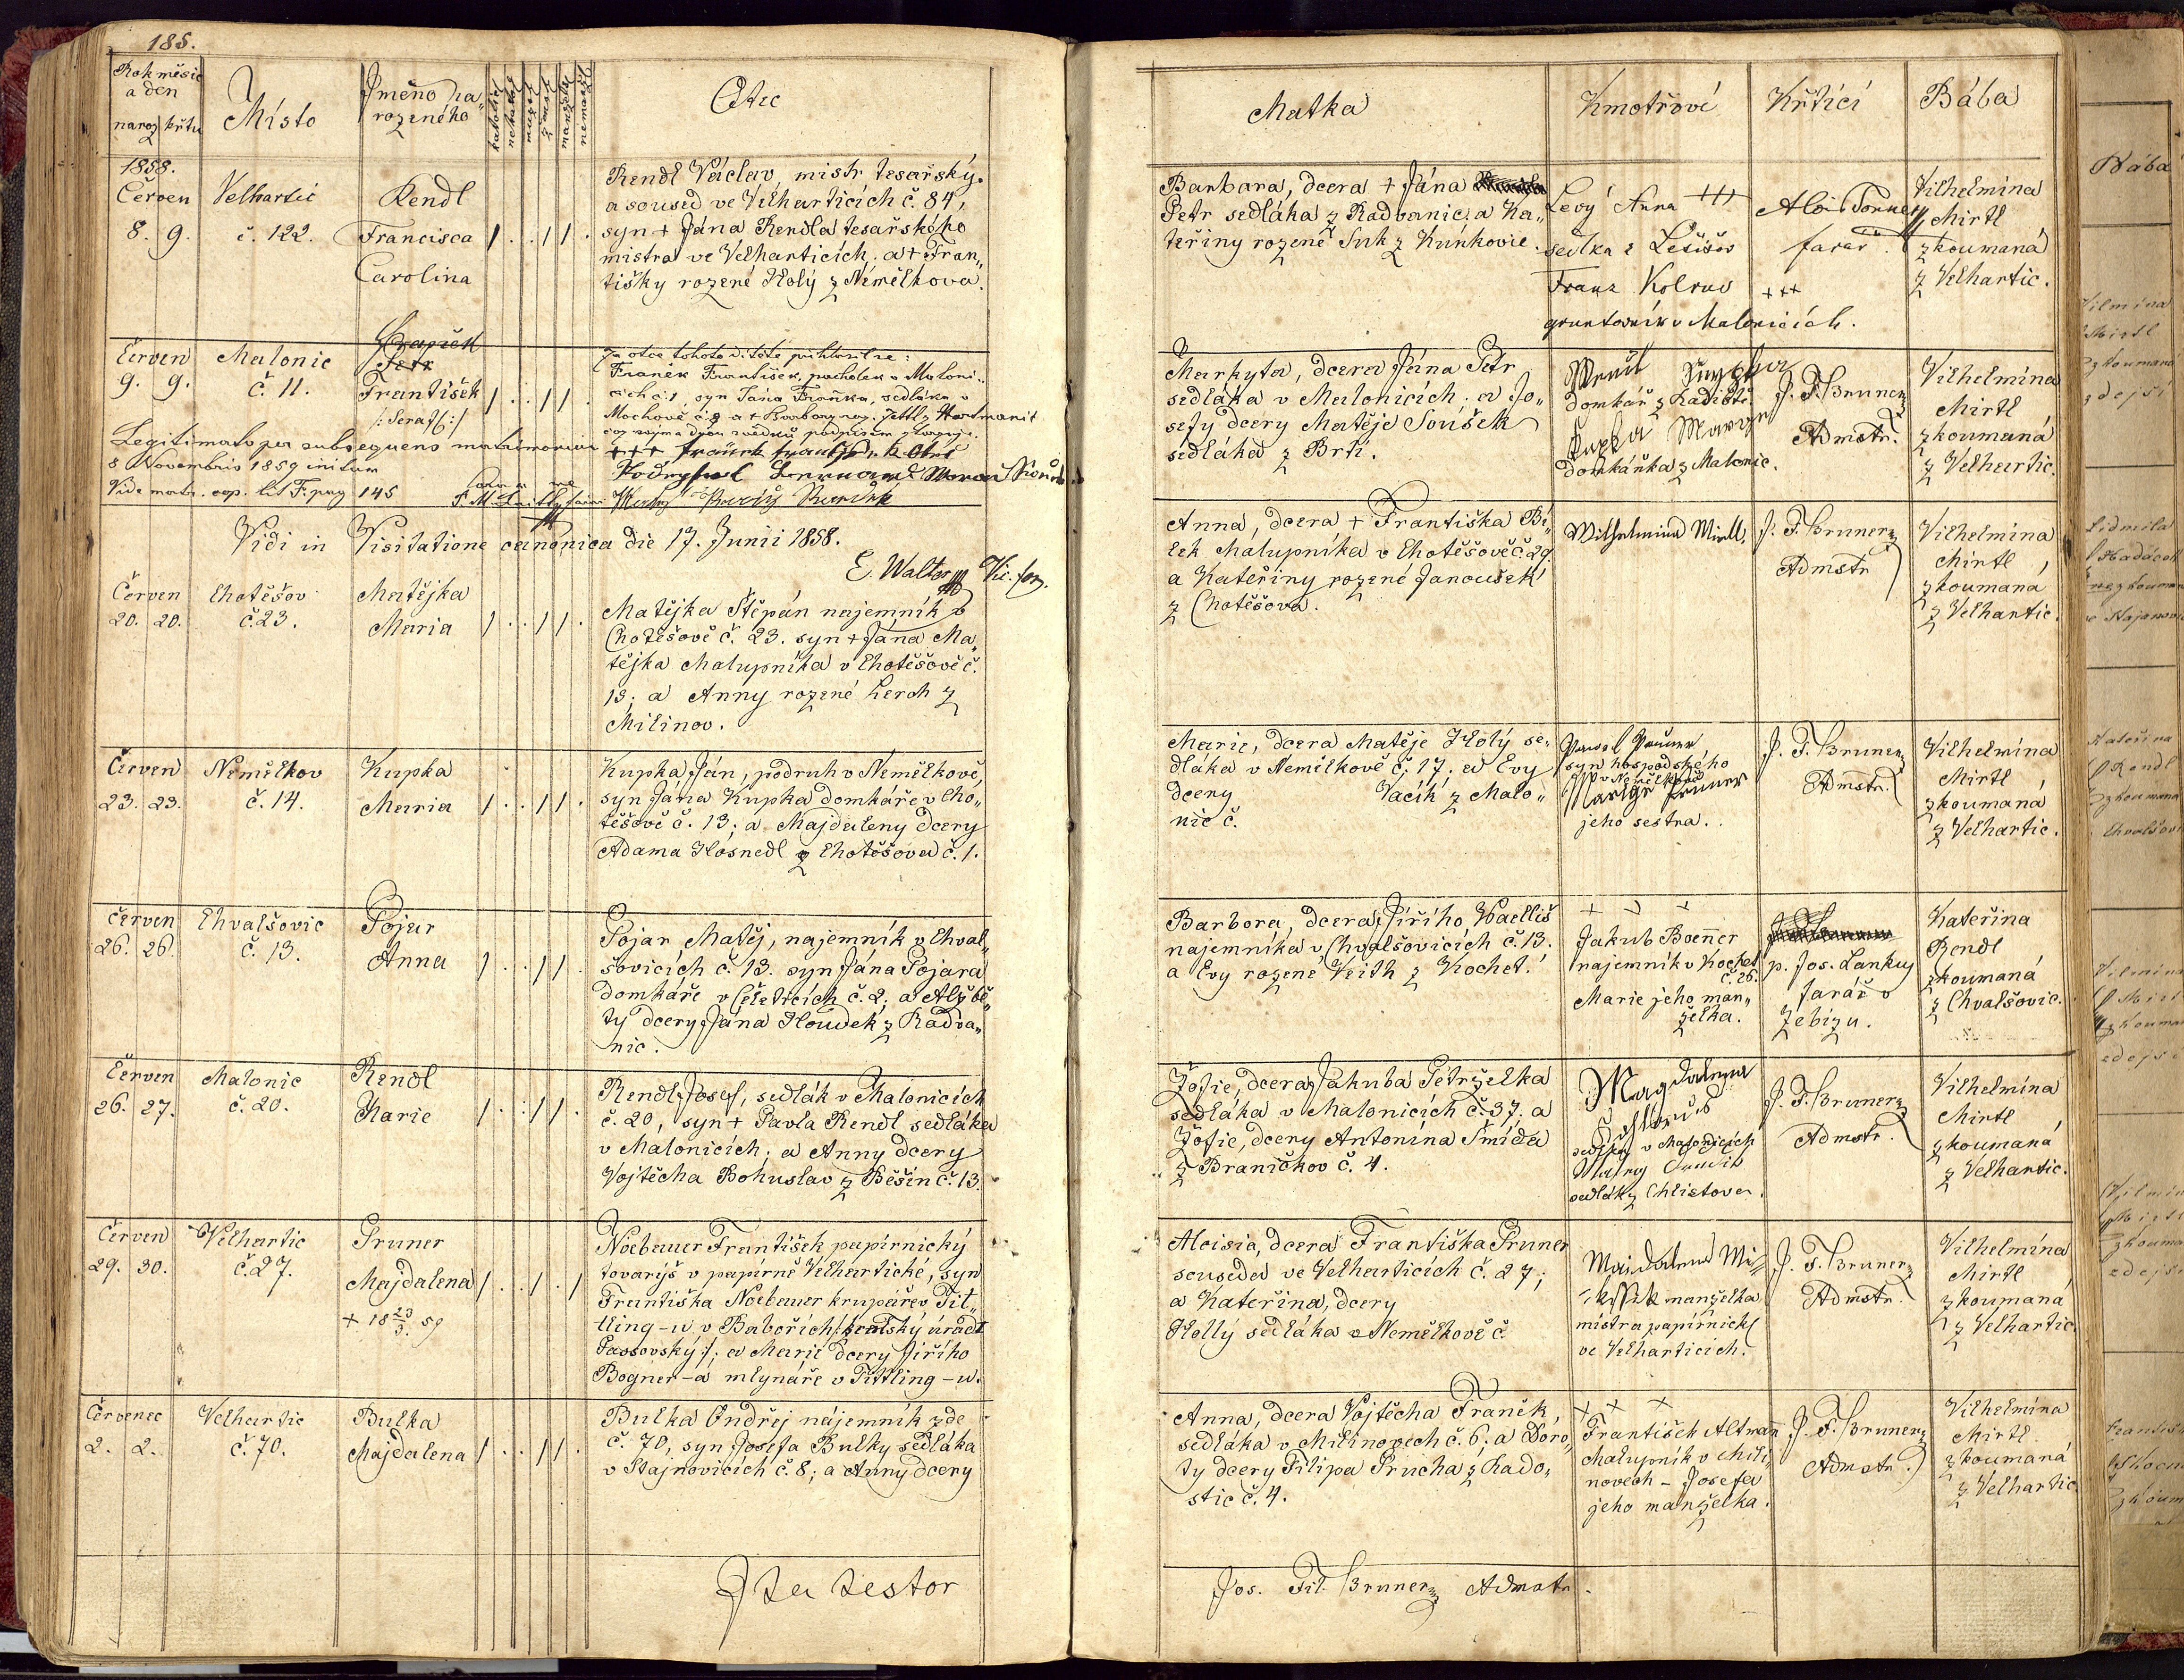 185.
Rok měsíc
a den
naroz křtu
Místo
Jméno na„
rozeného
katolické
nekatol
muž
žensk
manžel
nemanž
Otec
1858.
Červen
8. 9.
Velhartic
č. 122.
Rendl
Francisca
Carolina
Rendl Václav, mistr tesařský
a soused ve Velharticích č. 84,
syn + Jána Rendla tesařského
mistra ve Velharticích, a + Fran„
tišky rozené Holý z Němělkova.
Červen
9. 9.
Malonic
č. 11.
Petr
František
/: Seraf :/
Za otce tohoto dítěte přihlásil se:
Franěk František, pacholek v Maloni„
cích č. 1, syn Jána Fraňka, sedláka v
Mochově č. 9 a + Barbory roz. z Hartmanic
což svýma dvou svědků podpisem stvrzuje.
+++ Franěk František
Legitimato per subsequens matrimonium
8 Novembris 1859 initum
Vide matr. cop. lit F. pag 145
Vidi in Visitatione canonica die 17. Junii 1858.
E. Walter Vic. for.
Červen
20. 20.
Chotěšov
č. 23.
Matějka
Maria
Matějka Štěpán najemník v
Chotěšově č. 23. syn + Jána Ma„
tějka chalupníka v Chotěšově č.
13; a Anny rozené Lerch z
Milinov.
Červen
23. 23.
Němělkov
č. 14.
Kupka
Maria
Kupka Ján, podruh v Němělkově,
syn Jána Kupka domkáře v Cho„
těšově č. 13; a Majdaleny dcery
Adama Hosnedl z Chotěšova č. 1.
Červen
26. 26.
Chvalšovic
č. 13.
Pojar
Anna
Pojar Matěj, najemník v Chval„
šovicích č. 13. syn Jána Pojara
domkáře v Čeletricích č. 2; a Alžbě„
ty dcery Jána Houdek z Radva„
nic.
Červen
26. 27.
Malonic
č. 20.
Rendl
Marie
Rendl Josef, sedlák v Malonicích
č. 20, syn + Pavla Rendl sedláka
v Malonicích; a Anny dcery
Vojtěcha Bohuslav z Běšin č. 13.
Červen
29. 30.
Velhartic
č. 27.
Pruner
Majdalena
+ 18 23/3. 59
Noebauer František papírnický
tovaryš v papírně Velhartické, syn
Františka Noebauer krupaře v Tit„
tling-u v Bavořích /: kraský úrad
Passovský :/; a Marie dcery Jiřího
Bogner-a mlynáře v Tittling-u.
Červenec
2. 2.
Velhartic
č. 70.
Bulka
Majdalena
Bulka Ondřej nájemník zde
č. 70, syn Josefa Bulky sedláka
v Stajnovicích č. 8; a Anny dcery
Ita testor
Matka
Kmotřové
Křtící
Bába
Barbara, dcera + Jána
Petr sedláka z Radvanic, a Ka„
teřiny rozené Suk z Kunkovic.
Levý Anna +++
sedlka z Lešišov
Franz Kolrus +++
gruntovník v Malonicích.
Alois
farář
Vilhelmina
Mirtl
zkoumaná
z Velhartic.
Markyta, dcera Jána Petr
sedláka v Malonicích, a Jo„
sefy dcery Matěje Soušek
sedláka z Brtí.
domkář z Radostic
Kupka
domkářka z Malonic.
J. F. Bruner
Admstr.
Vilhelmína
Mirtl
zkoumaná
z Velhartic.
Anna, dcera + Františka Bí„
lek chalupníka v Chotěšově č. 29.
a Kateřiny rozené Janoušek
z Chotěšova.
Wilhelmina Mirtl.
J. F. Bruner
Admstr
Vilhelmína
Mirtl,
zkoumaná
z Velhartic.
Marie, dcera Matěje Holý se„
dláka v Němělkově č. 17. a Evy
dcery Vacík z Malo„
nic č.
Pawel Pruner,
syn hospodského
v Němělkově
Marige Pruner
jeho sestra.
J. F. Bruner
Admstr.
Vilhelmína
Mirtl
zkoumaná
z Velhartic.
Barbora, dcera Jiřího Waelliš
najemníka v Chvalšovicích č. 13.
a Evy rozené Veith z Kochet.
+ + +
Jakub Boenner
najemník v Kochet
č. 26.
Marie jeho man„
želka.
p. Jos. Lankuj
farář v
Zebizu.
Kateřina
Rendl
zkoumaná
z Chvalšovic.
Žofie, dcera Jakuba Petrželka
sedláka v Malonicích č. 37. a
Žofie, dcery Antonína Šmída
z Braničkov č. 4.
Magdalena
sedlka v Malonicích
sedlák z Chlistova.
J. F. Bruner
Admstr.
Vilhelmína
Mirtl
zkoumaná
z Velhartic.
Aloisia, dcera Františka Pruner
souseda ve Velharticích č. 27;
a Kateřina, dcery
Hollý sedláka v Němělkově č.
Majdalena
manželka
mistra papírnick
ve Velharticích.
J. F. Bruner
Admstr.
Vilhelmína
Mirtl
zkoumaná
z Velhartic.
Anna, dcera Vojtěcha Franěk,
sedláka v Milinovech č. 6; a Doro„
ty dcery Filipa Prucha z Rado„
stic č. 4.
+ + +
František Altmann
chalupník v Mili„
novech - Josefa
jeho manželka.
J. F. Bruner
Admstr.
Vilhelmína
Mirtl
zkoumaná
z Velhartic.
Jos. Fil. Bruner Admstr.
Bába